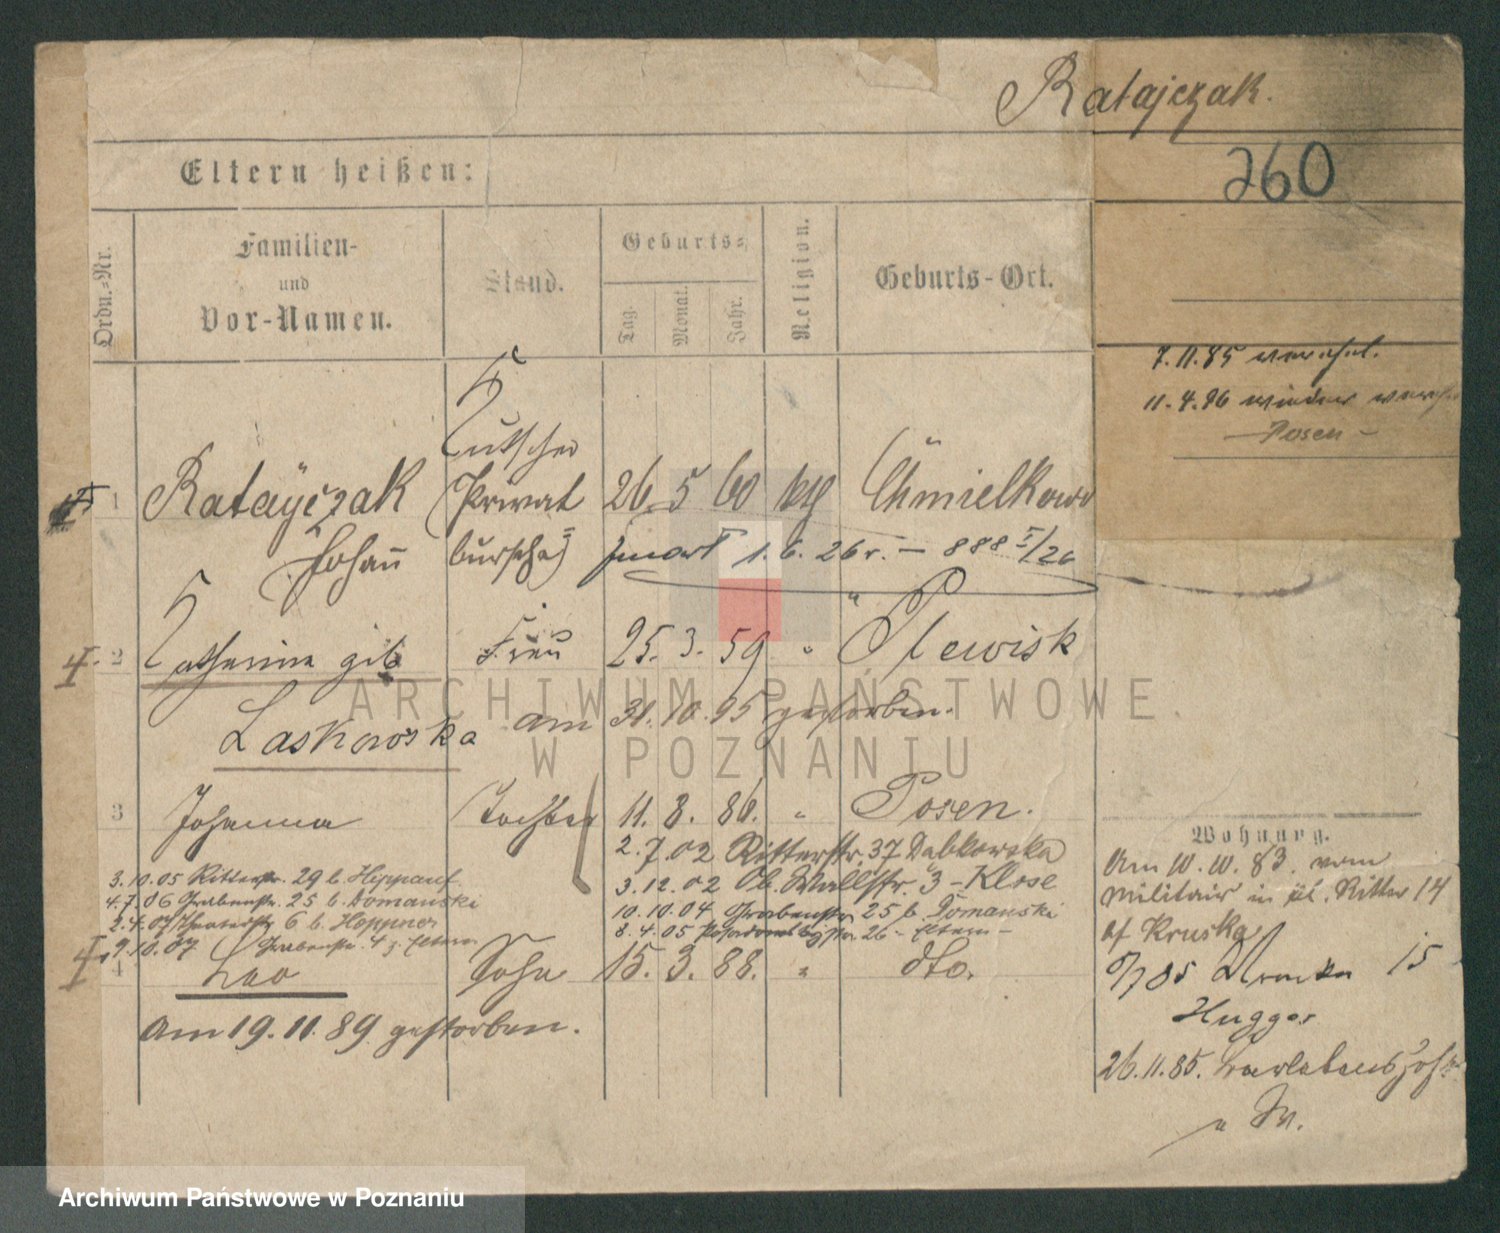 Ratajczak.
260
Eltern heißen:
Ordn.-Nr.
Familien-
und
Vor-Namen.
Stand.
Geburts-
Tag.
Monat.
Jahr.
Religion.
Geburts-Ort.
7.11.85 verehel.
11.4.96 wieder
- Posen -
1 Ratayczak Kutscher Privat 26. 5 60 kth Chmielkowo
Johann 1. 6. 26 888 I/26
2 Katharina geb Frau 25. 3. 59 " Plewisk
Laskowska am 31.10.95 gestorben.
3 Johanna Tochter 11. 8. 86. " Posen.
2.7.02 Ritterstr. 37 Dabkowska
3.12.02 Ob. Wallstr. 3 - Klose
10.10.04 Grabenstr 25 b. Tomanski
8.4.05 26 - Eltern -
3.10.05 Ritterstr. 29 b. Hippauf
4.7.06 Grabenstr. 25 b. Domanski
2.4.07 Theaterstr 6 b. Hoppner
9.10.07 Grabenstr. 4 Eltern
4 Leo Sohn 15. 3. 88. " dto.
am 19.11.89 gestorben.
Wohnung.
Am 10.10.83. vom
Militair in kl. Ritter 14
bf Kruska
5/7 85 15
Hugger
26.11.85.
ARCHIWUM PAŃSTWOWE
W POZNANIU
Archiwum Państwowe w Poznaniu